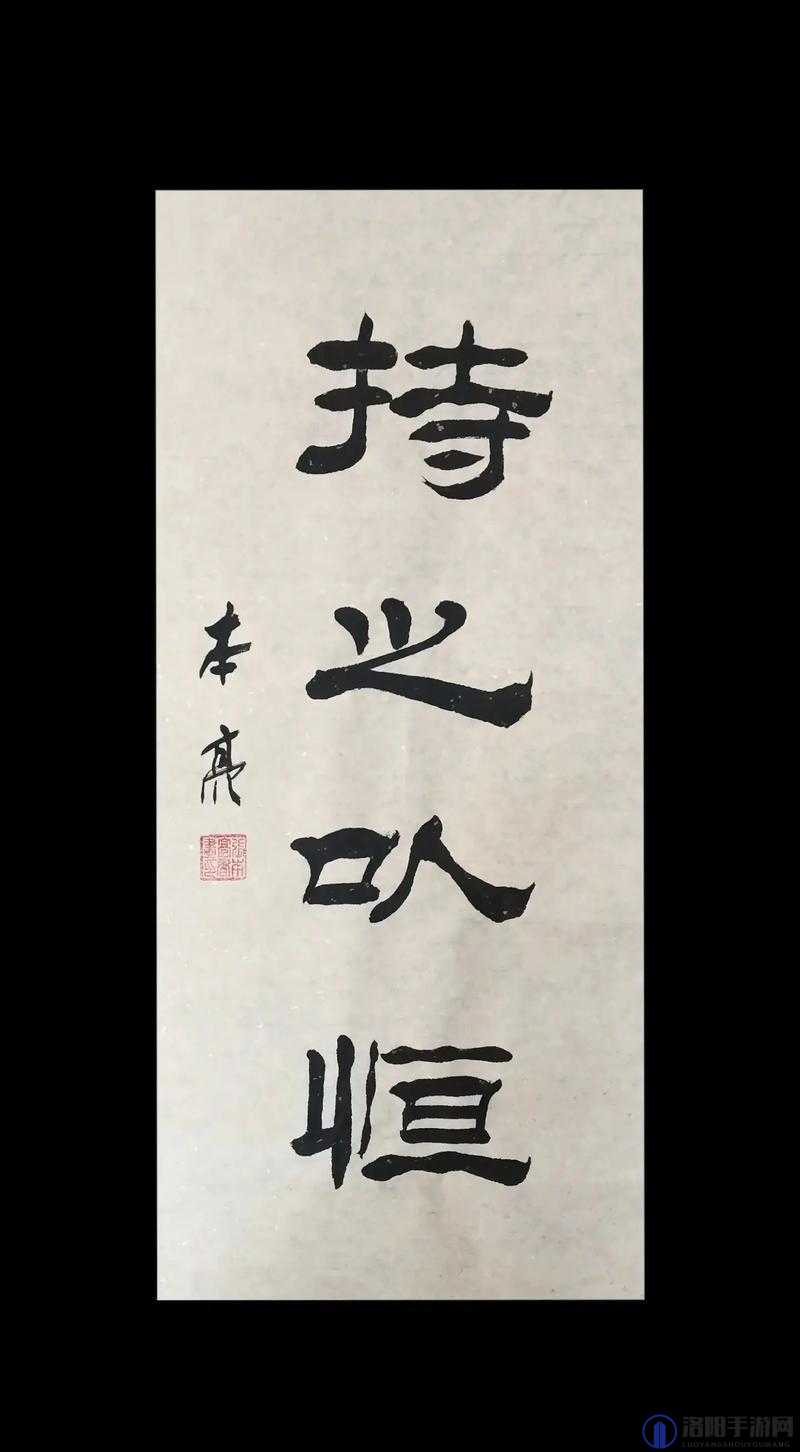 持之以恒
本亮
洛阳手游网
LUOYANGSHOUYOUWANG